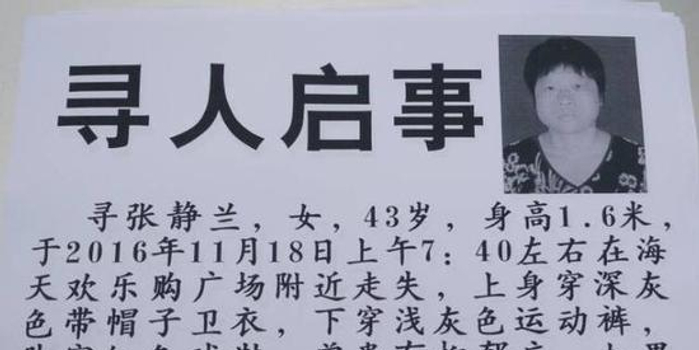 寻人启事
寻张静兰，女，43岁，身高1.6米，
于2016年11月18日上午7：40左右在海
天欢乐购广场附近走失，上身穿深灰
色带帽子卫衣，下穿浅灰色运动裤，